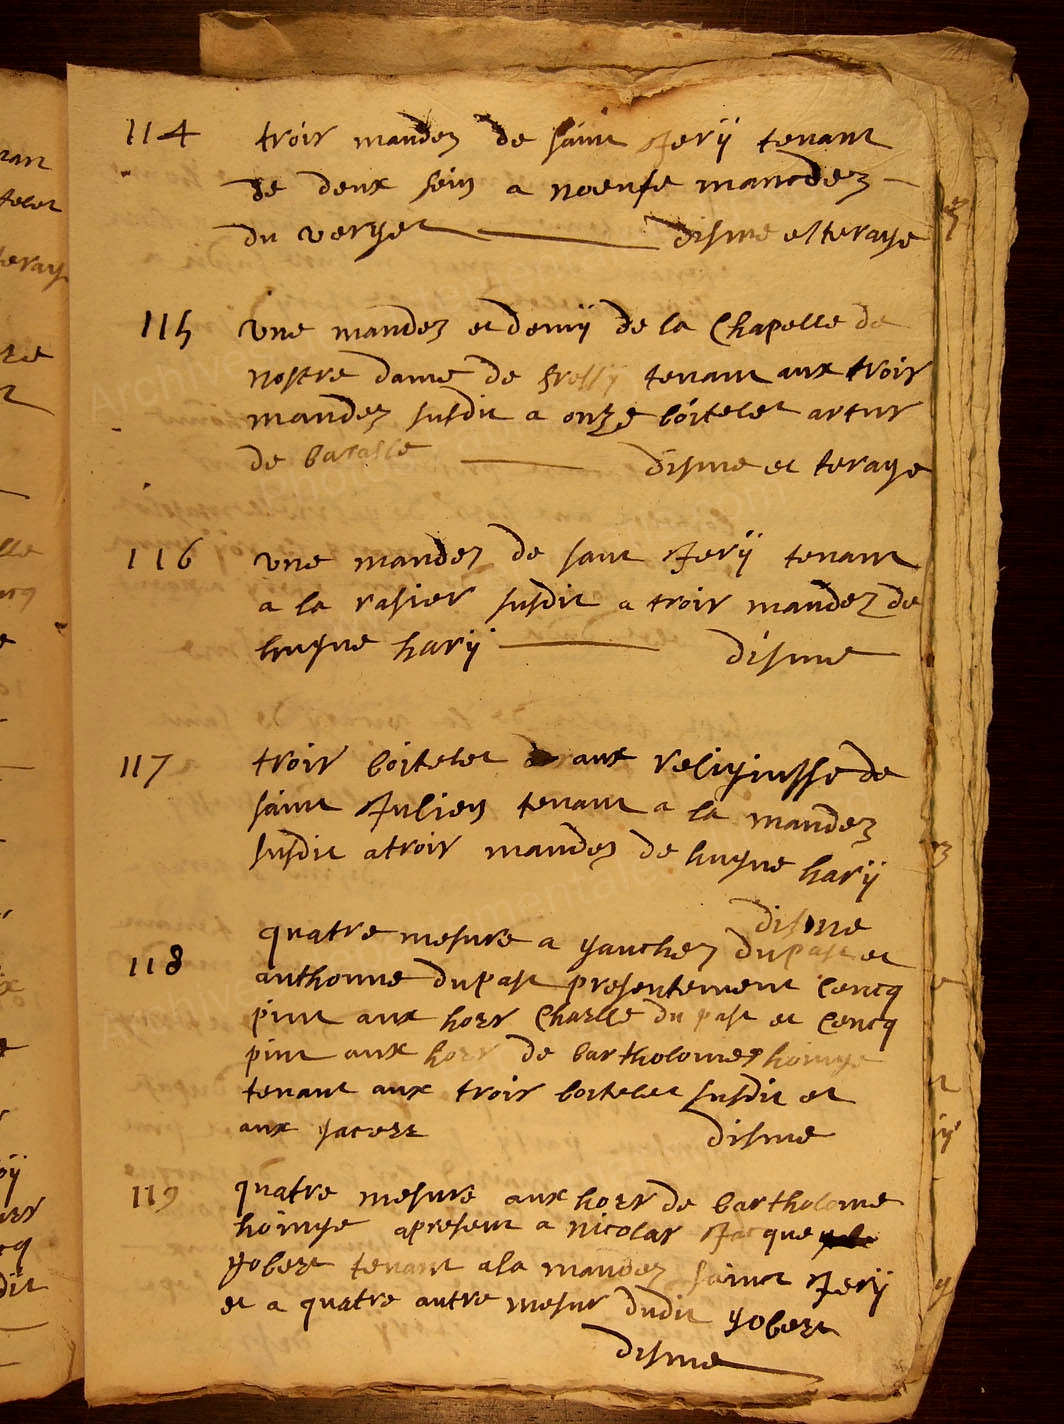 114 troir mandez de saint Jerÿ tenant
de deux sein a noeufe mancdez
du verger disme et teraye
115 une mandez et demÿ de la Chapelle de
nostre dame de fressÿ tenant aux troir
mandez susdit a onze boitelet artur
de disme et teraye
116 une mandez de saint Jerÿ tenant
a la rasier susdit a troir mandez de
hugue harÿ disme
117 troir boitelet aux religiusse de
saint Julien tenant a la mandez
susdit a troir mandez de hugue harÿ
disme
118 quatre mesure a gauchez dupast et
anthonne dupast presentement Cencq
pint aux hoer Charlle du past et Cencq
pint aux hoer de bartholomez hoinge
tenant aux troir boitelet susdit et
aux disme
119 quatre mesure aux hoer de bartholome
hoinge apresent a nicolas Jacque
yobert tenant a la mandez saint Jerÿ
et a quatre autre mesur dudit yobert
disme